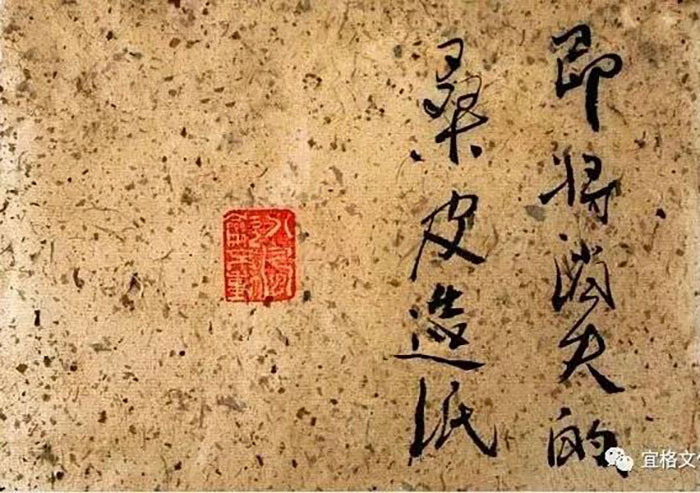 即将消失的
桑皮造纸
宜格文化